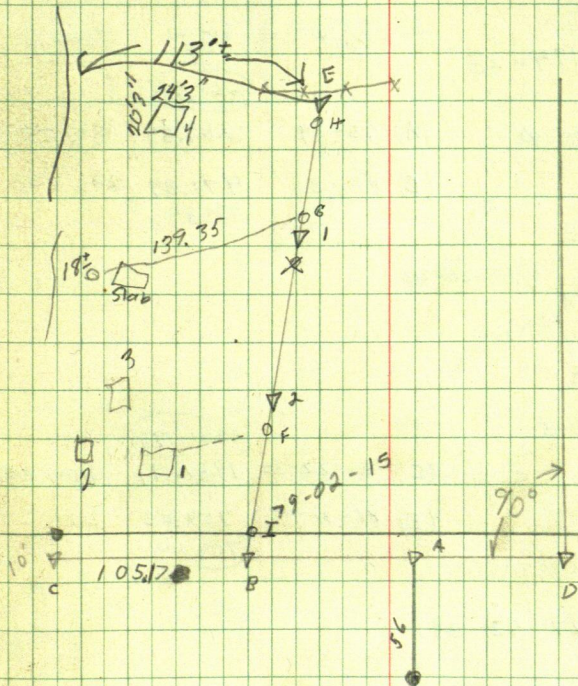 113'±
E
24'3"
20'3"
4
H
G
139.35
1
18"±
Slab
3
2
F
2
1
79-02-15
I
90°
10'
A
105.17
C
B
D
56